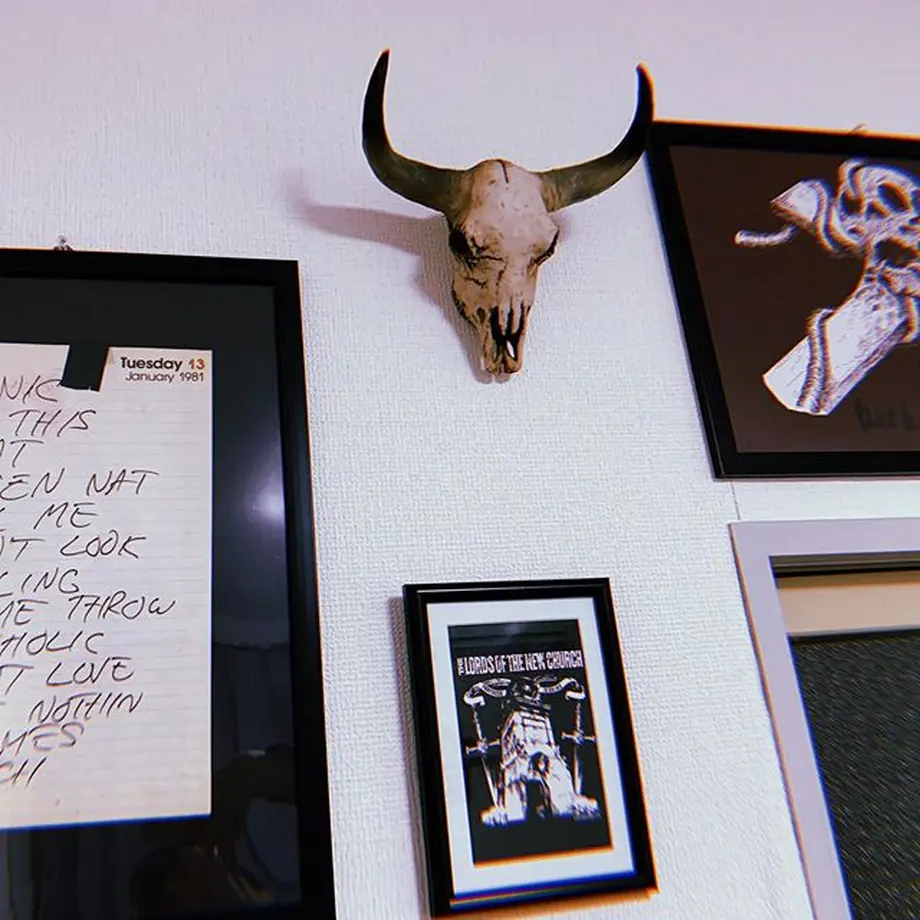 Tuesday 13
January 1981
NIC
THIS
AT
EN NAT
ME
T LOOK
LING
ME THROW
HOLIC
T LOVE
NOTHIN
MES
CH
THE LORDS OF THE NEW CHURCH